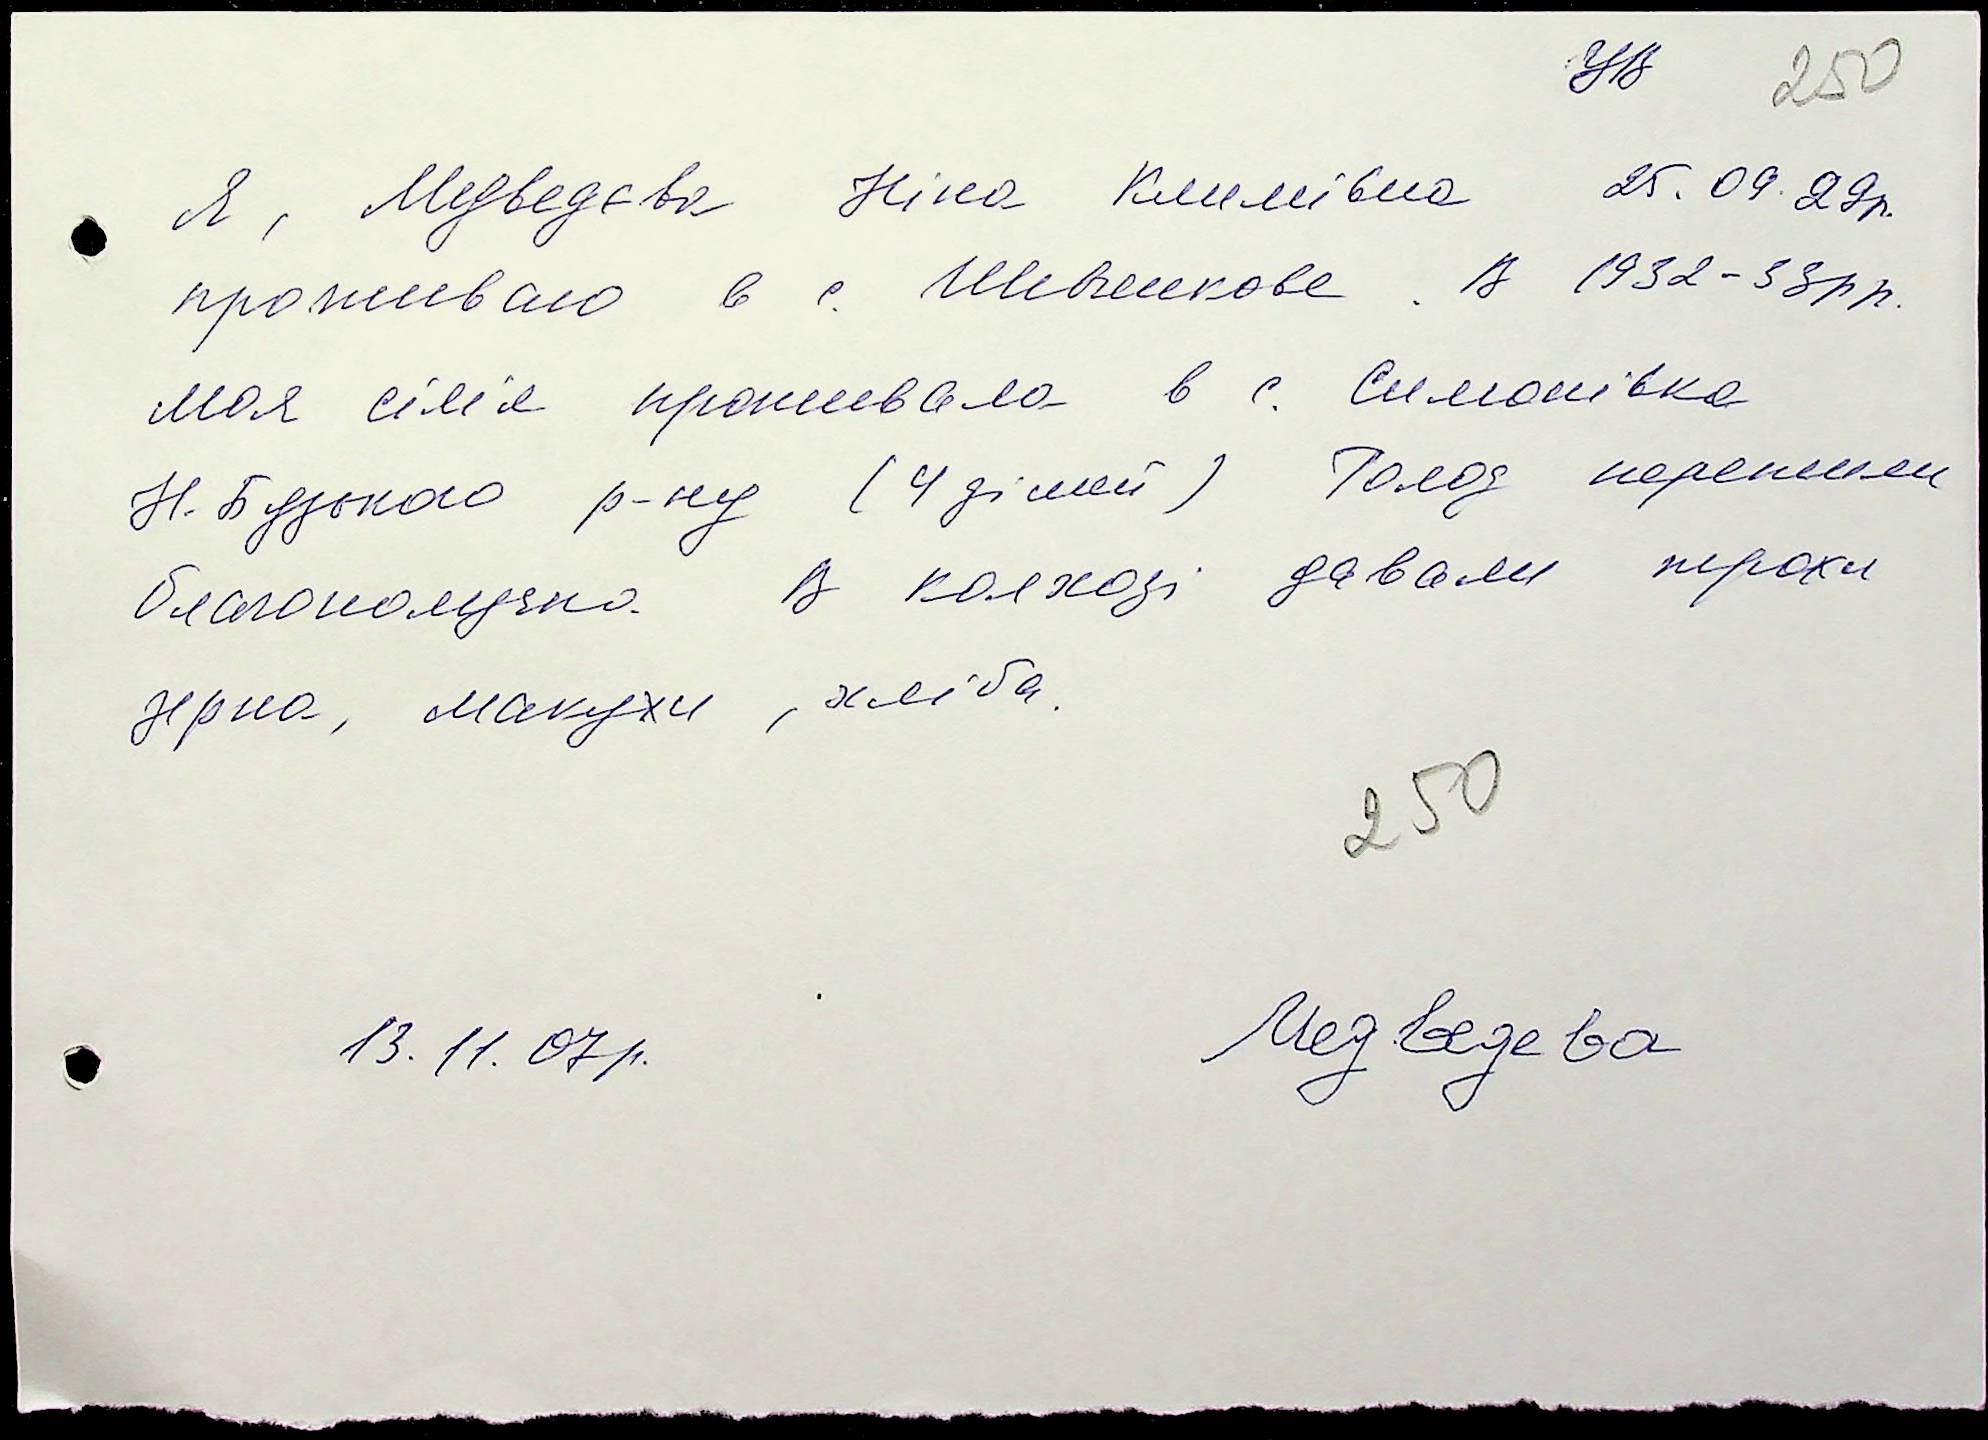 УВ 250
Я, Медведєва Ніна Климівна 25.09.29р.
проживаю в с. Шевченкове. В 1932-33рр.
моя сім'я проживала в с. Симонівка
Н.Бузького р-ну (4 дітей) Голод пережили
благополучно. В колхозі давали трохи
зерна, макухи, хліба.
250
13.11.07р. Медведева